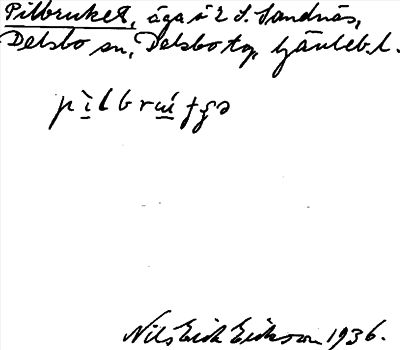 Pilbruket, äga å 2 S. Sandnäs,
Delsbo sn, Delsbo tg, Gävleb. l.
pìlbrúṭgə
Nils Erik Erikson 1936.